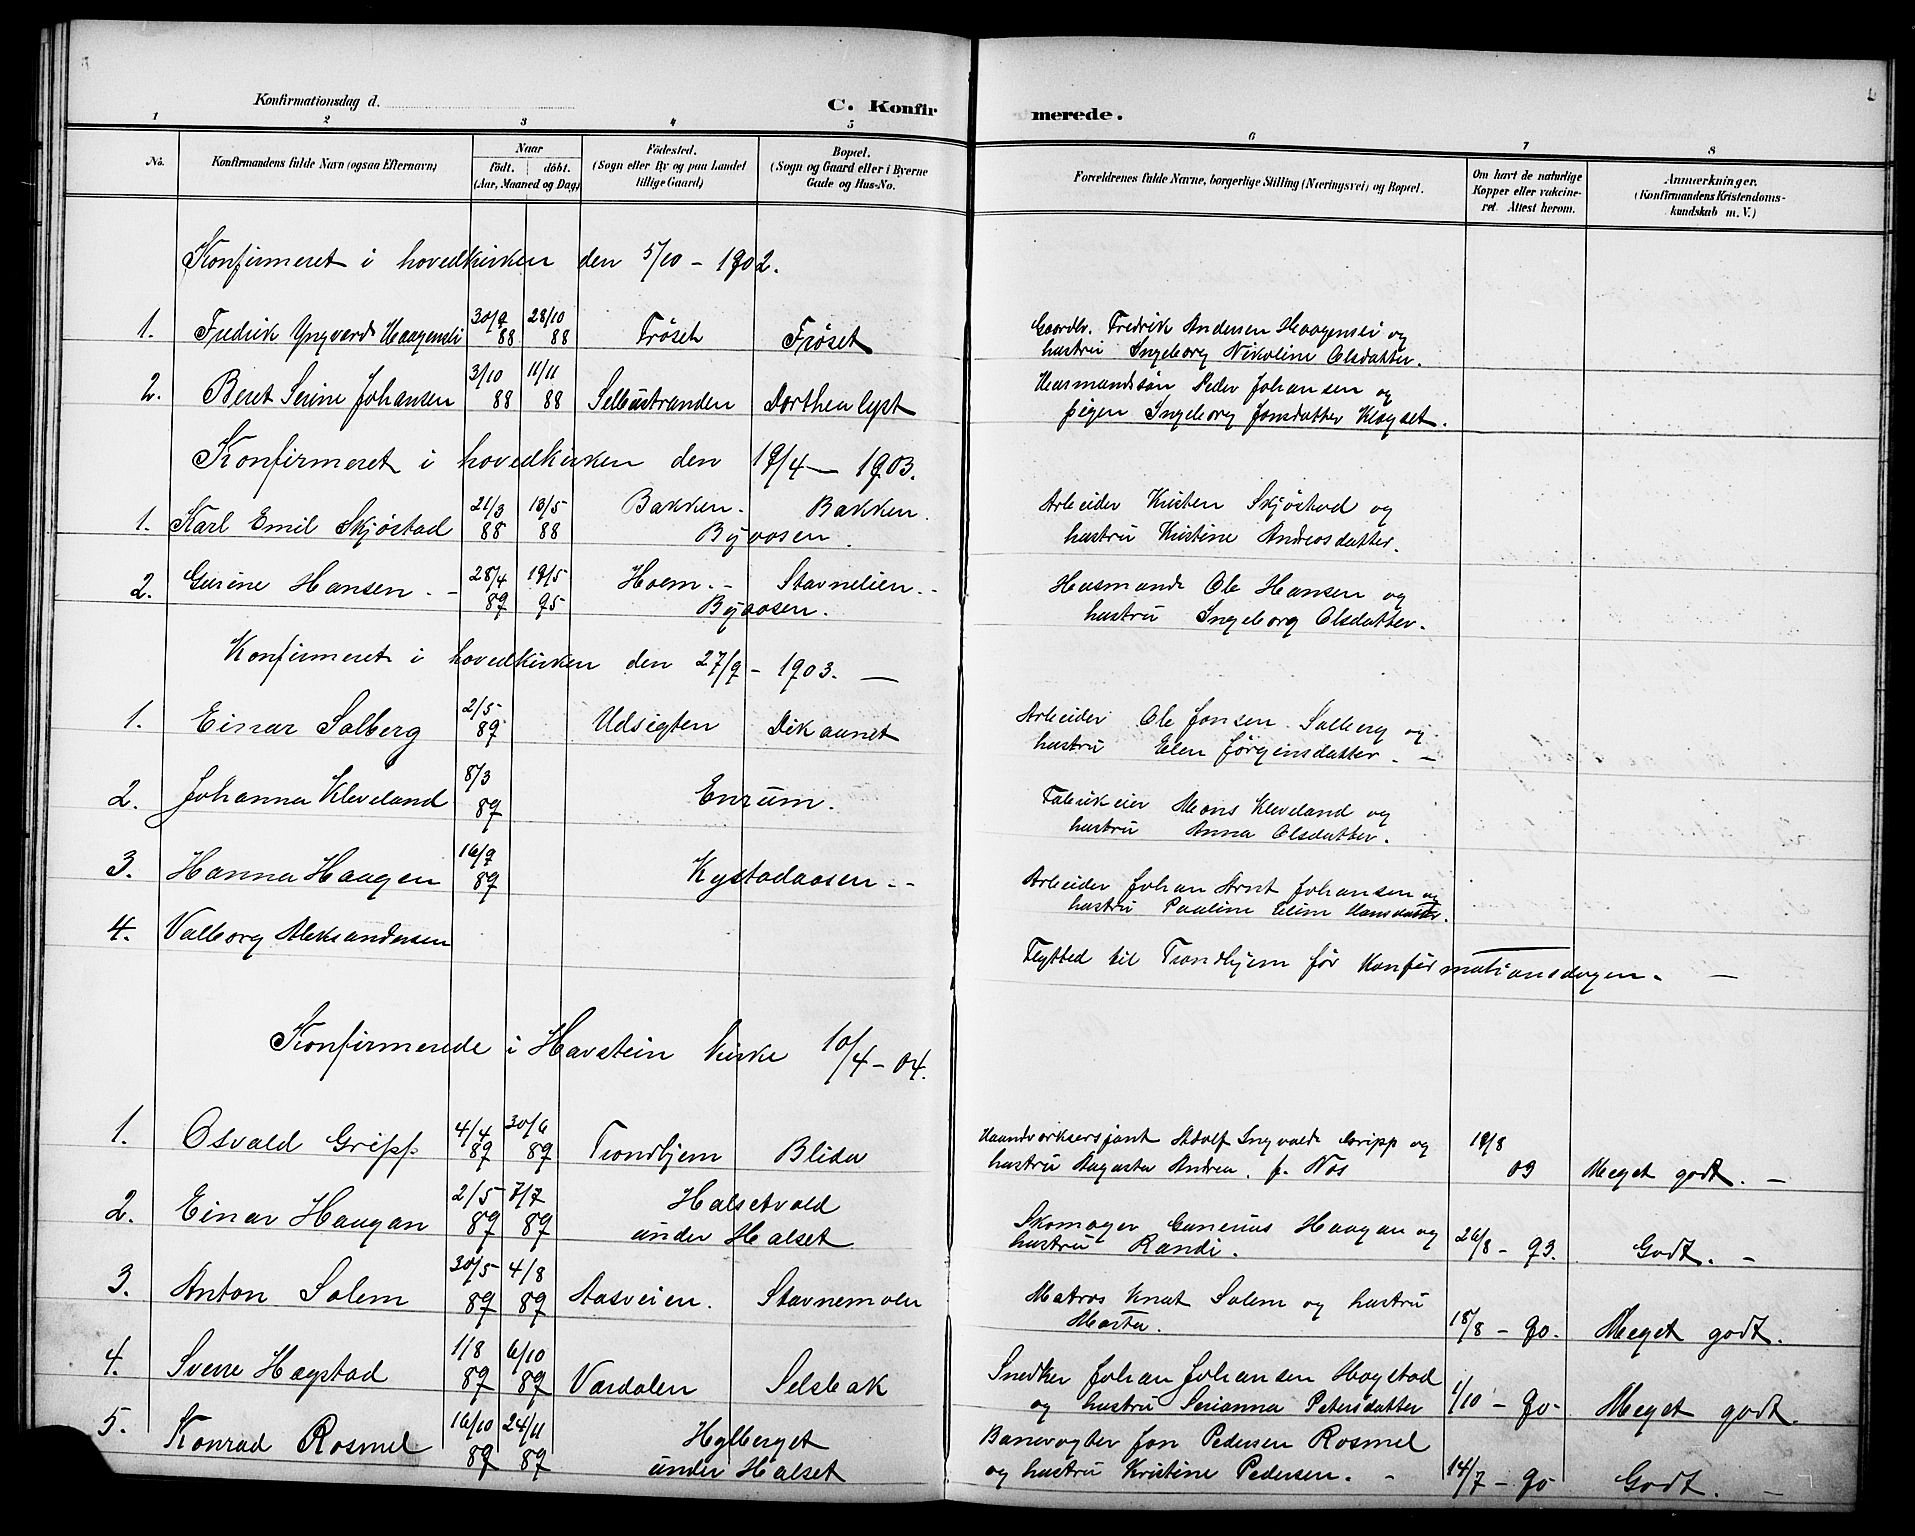 Konfirmationsdag d.
C. Konfirmerede.
1 2 3 4 5 6 7 8
No. Konfirmandens fulde Navn (ogsaa Efternavn) Naar født. døbt. (Aar, Maaned og Dag) Fødested. (Sogn eller By og paa Landet tillige Gaard) Bopæl. (Sogn og Gaard eller i Byerne Gade og Hus-No. Forældrenes fulde Navne, borgerlige Stilling (Næringsvei) og Bopæl. Om havt de naturlige Kopper eller vakcineret. Attest herom. Anmærkninger. (Konfirmandens Kristendomskundskab m. V.)
Konfirmeret i hovedkirken den 5/10 - 1902.
1. Fredrik Yngvard Haagensli 30/9 88 28/10 88 Frøset Frøset Gaardbr. Fredrik Andersen Haagensli og
hustru Ingeborg Nikoline Olsdatter.
2. Beret Serine Johansen 3/10 88 11/11 88 Selbustranden Dorthealyst Husmandssøn Peder Johansen og
pigen Ingeborg Jonsdatter
Konfirmeret i hovedkirken den 19/4 - 1903.
1. Karl Emil Skjøstad 21/3 88 13/5 88 Bakken. Bakken. Arbeider Kristen Skjøstad og
Byaasen. hustru Kristine Andreasdatter.
2. Gurine Hansen. - 28/4 89 19/5 95 Hoem. - Stavnelien. - Husmand Ole Hansen og
Byaasen. hustru Ingeborg Olsdatter.
Konfirmeret i hovedkirken den 27/9 - 1903. -
1. Einar Solberg 2/5 89 Udsigten Dikaunet Arbeider Ole Jonsen Solberg og
hustru Elen Jørgensdatter. -
2. Johanna Kleveland 8/3 89 Enrum. Fabrikeier Mons Kleveland og
hustru Anna Olsdatter.
3. Hanna Haagen 16/9 89 Kystadaasen. - Arbeider Johan Arnt Johansen og
hustru Pauline Eline Hansdatter.
4. Valborg Aleksandersen Flytted til Trondhjem før Konfirmationsdagen. -
Konfirmerede i Havstein kirke 10/4 - 04.
1. Osvald Gripp. 4/4 89 30/6 89 Trondhjem Blida Haandverkersjant Adolf Ingvald Gripp og 19/8
hustru Augusta Andrea. f. Nos 03 Meget godt. -
2. Einar Haagan 2/5 89 7/7 89 Halsetvald Skomager Gunerius Haagan og 26/8 - 93. Godt. -
under Halset hustru Randi.
3. Anton Solem 30/5 89 4/8 89 Aasveien. Stavnemolen Matros Knut Solem og hustru
Marta. 18/8 - 90. Meget godt.
4. Sverre Hagstad 1/8 89 6/10 89 Værdalen Selsbak Snedker Johan Johansen Hagstad
og hustru Serianna Petersdatter 1/10 - 90 - Meget godt.
5. Konrad Rosmel 16/10 89 24/11 89 Hylberget Banevogter Jon Pedersen Rosmel
under Halset og hustru Kristine Pedersen. - 14/7 - 90 Godt. -